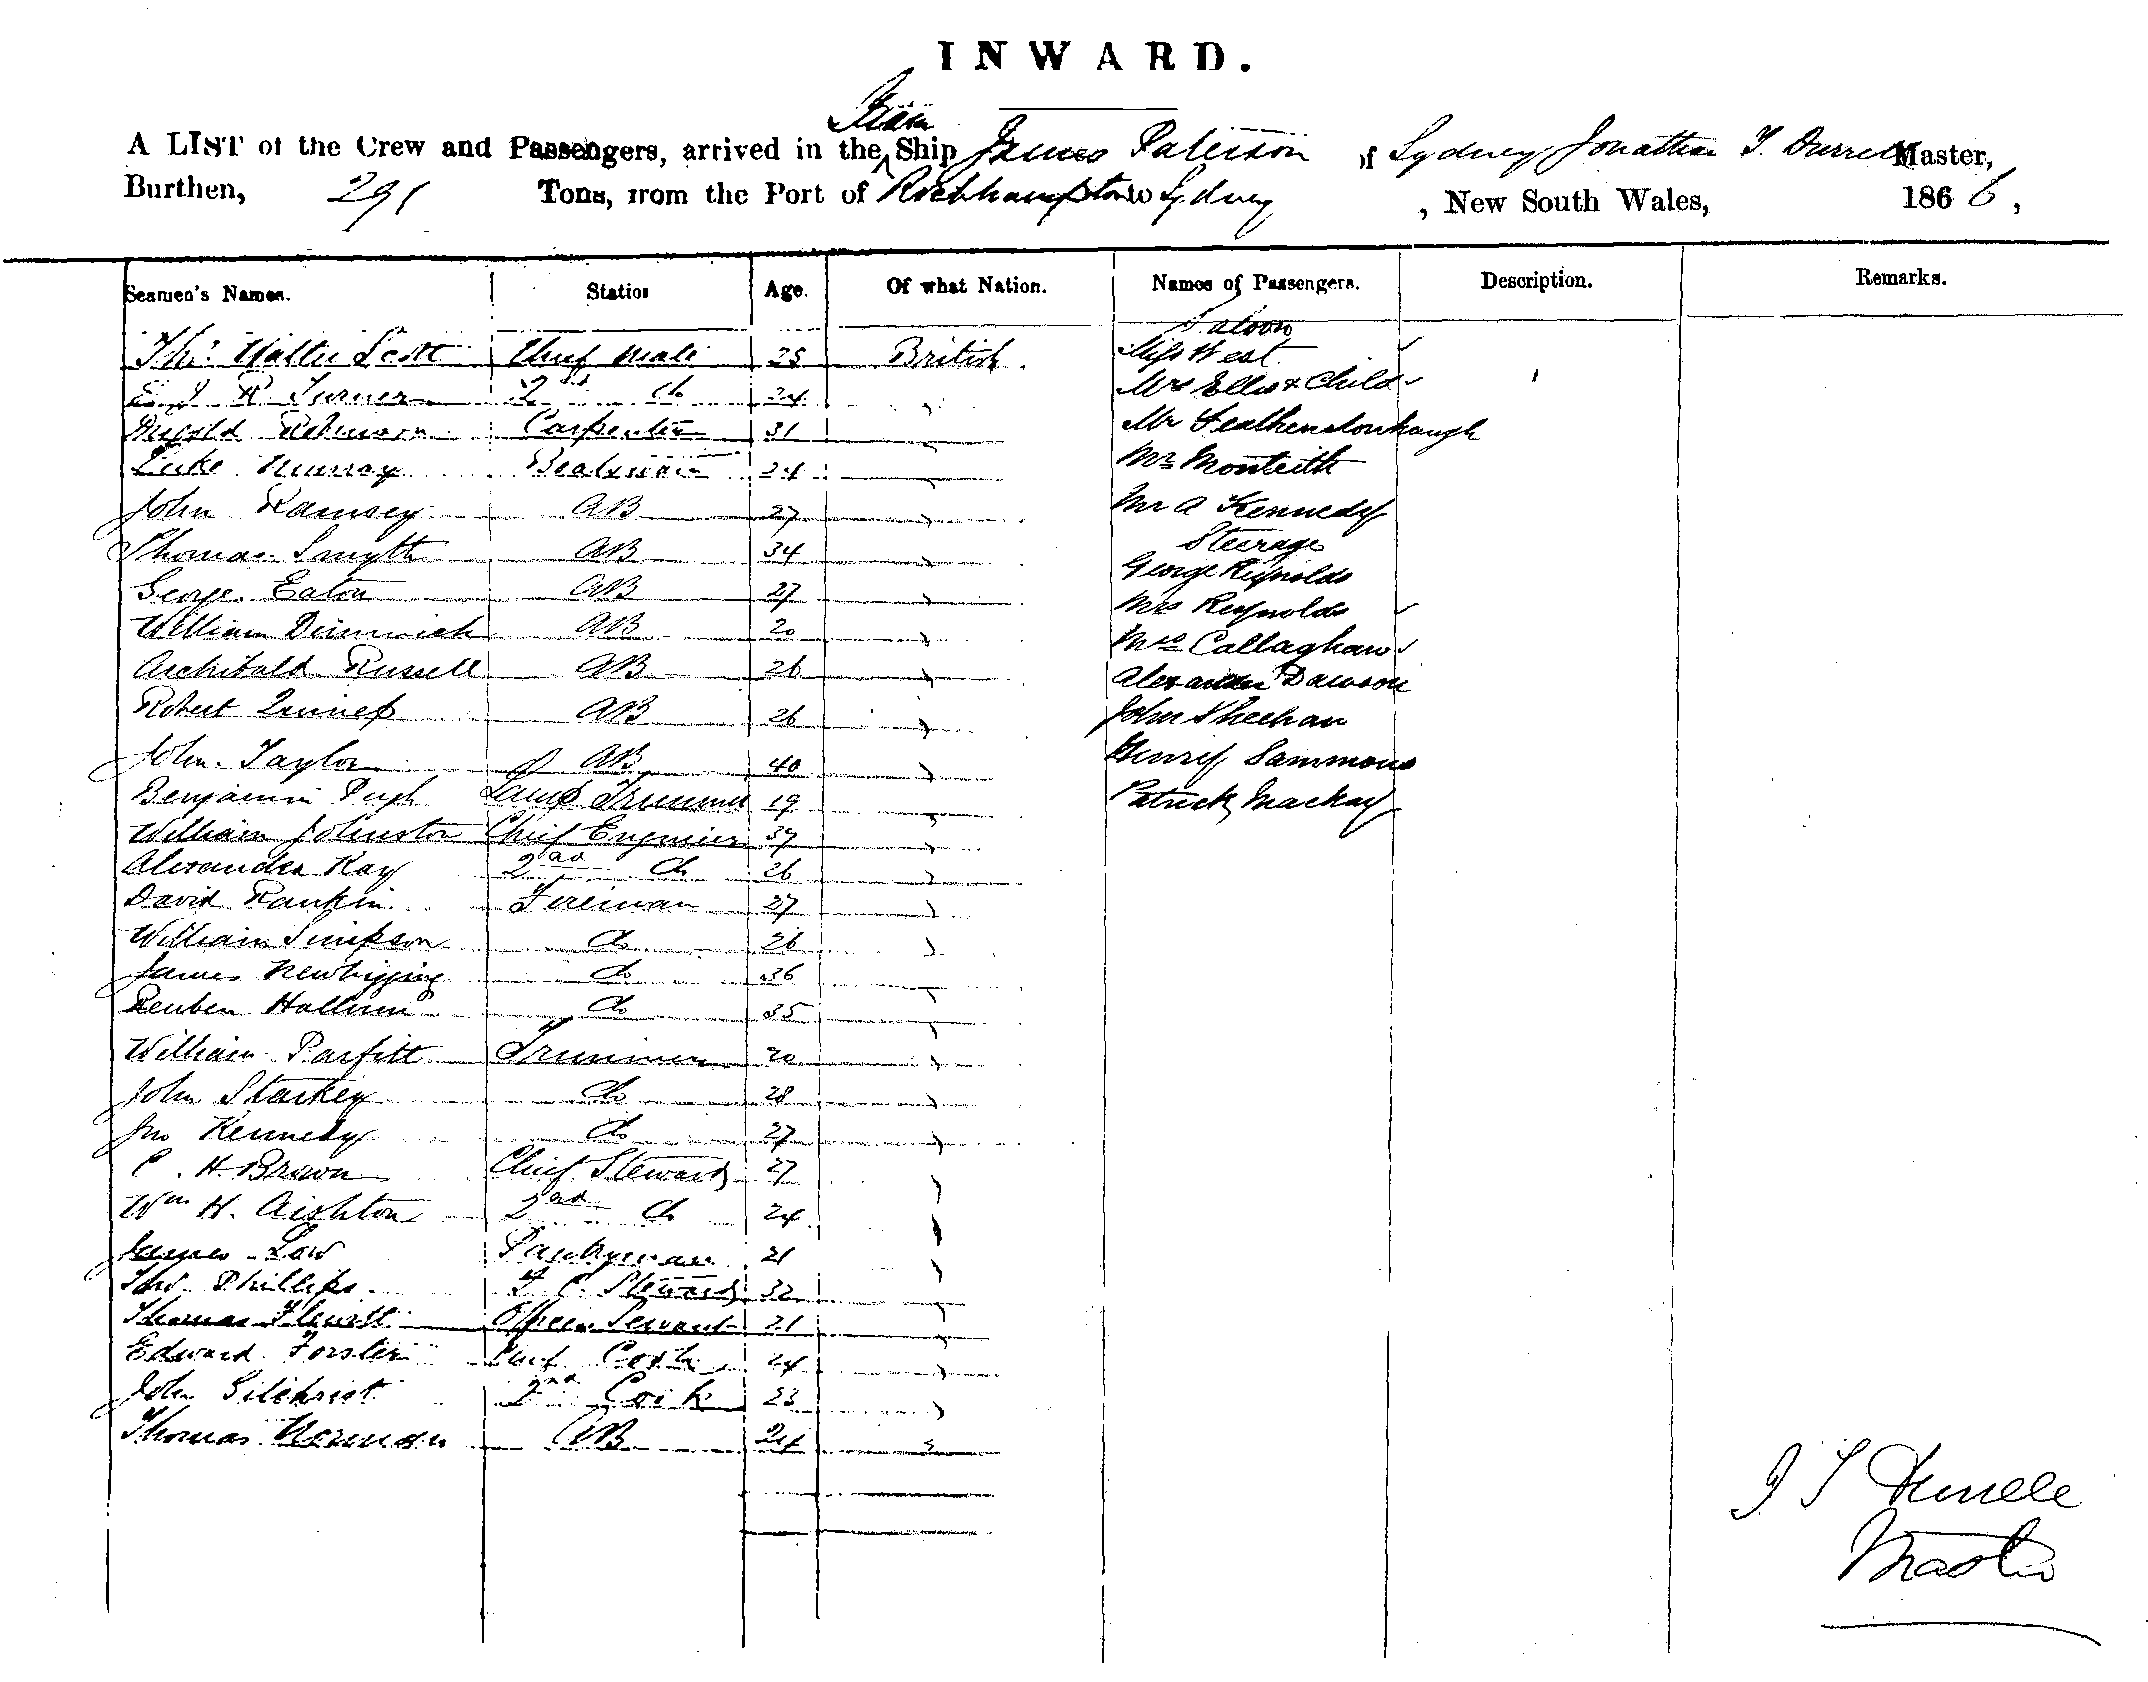 INWARD.
Steam
A LIST of the Crew and Passengers, arrived in the Ship James Paterson of Sydney Jonathan T. Durrell Master,
Burthen, 291 Tons, from the Port of Rockhampton to Sydney, New South Wales, 1866,
Seamen's Names. Station Age. Of what Nation. Names of Passengers. Description. Remarks.
Saloon
Thos. Walter Scott Chief Mate 25 British. Miss West
R. Turner 2nd do 24 " Mrs Ellis & Child
Robinson Carpenter 31 " Mr Featherstonhaugh
Luke Murray Boatswain 24 " Mr Monteith
John Ramsey AB 27 " Mr A Kennedy
Steerage
Thomas Smyth AB 34 " George Reynolds
George Eaton AB 27 " Mrs Reynolds
William Dimmick AB 20 " Mrs Callaghan
Archibald Russell AB 26 " Alexander Dawson
Robert AB 26 " John Sheehan
John Taylor AB 40 " Henry Sammons
Benjamin Pugh Lamp Trimmer 19 " Patrick Mackay
William Johnston Chief Engineer 37 "
Alexander Kay 2nd do 26 "
David Rankin Fireman 27 "
William Simpson do 26 "
James Newbigging do 36 "
Reuben Hallum do 35 "
William Parfitt Trimmer 20 "
John Starkey do 28 "
Jno Kennedy do 27 "
C. H. Brown Chief Steward 27 "
Wm H. Aishton 2nd do 24 "
James Low Pantryman 21 "
Phillips F. C. Steward 32 "
Thomas Flewitt Officers Servant 21 "
Edward Forster Chief Cook 24 "
John Gilchrist 2nd Cook 23 "
Thomas Norman AB 24 "
J T Durrell
Master